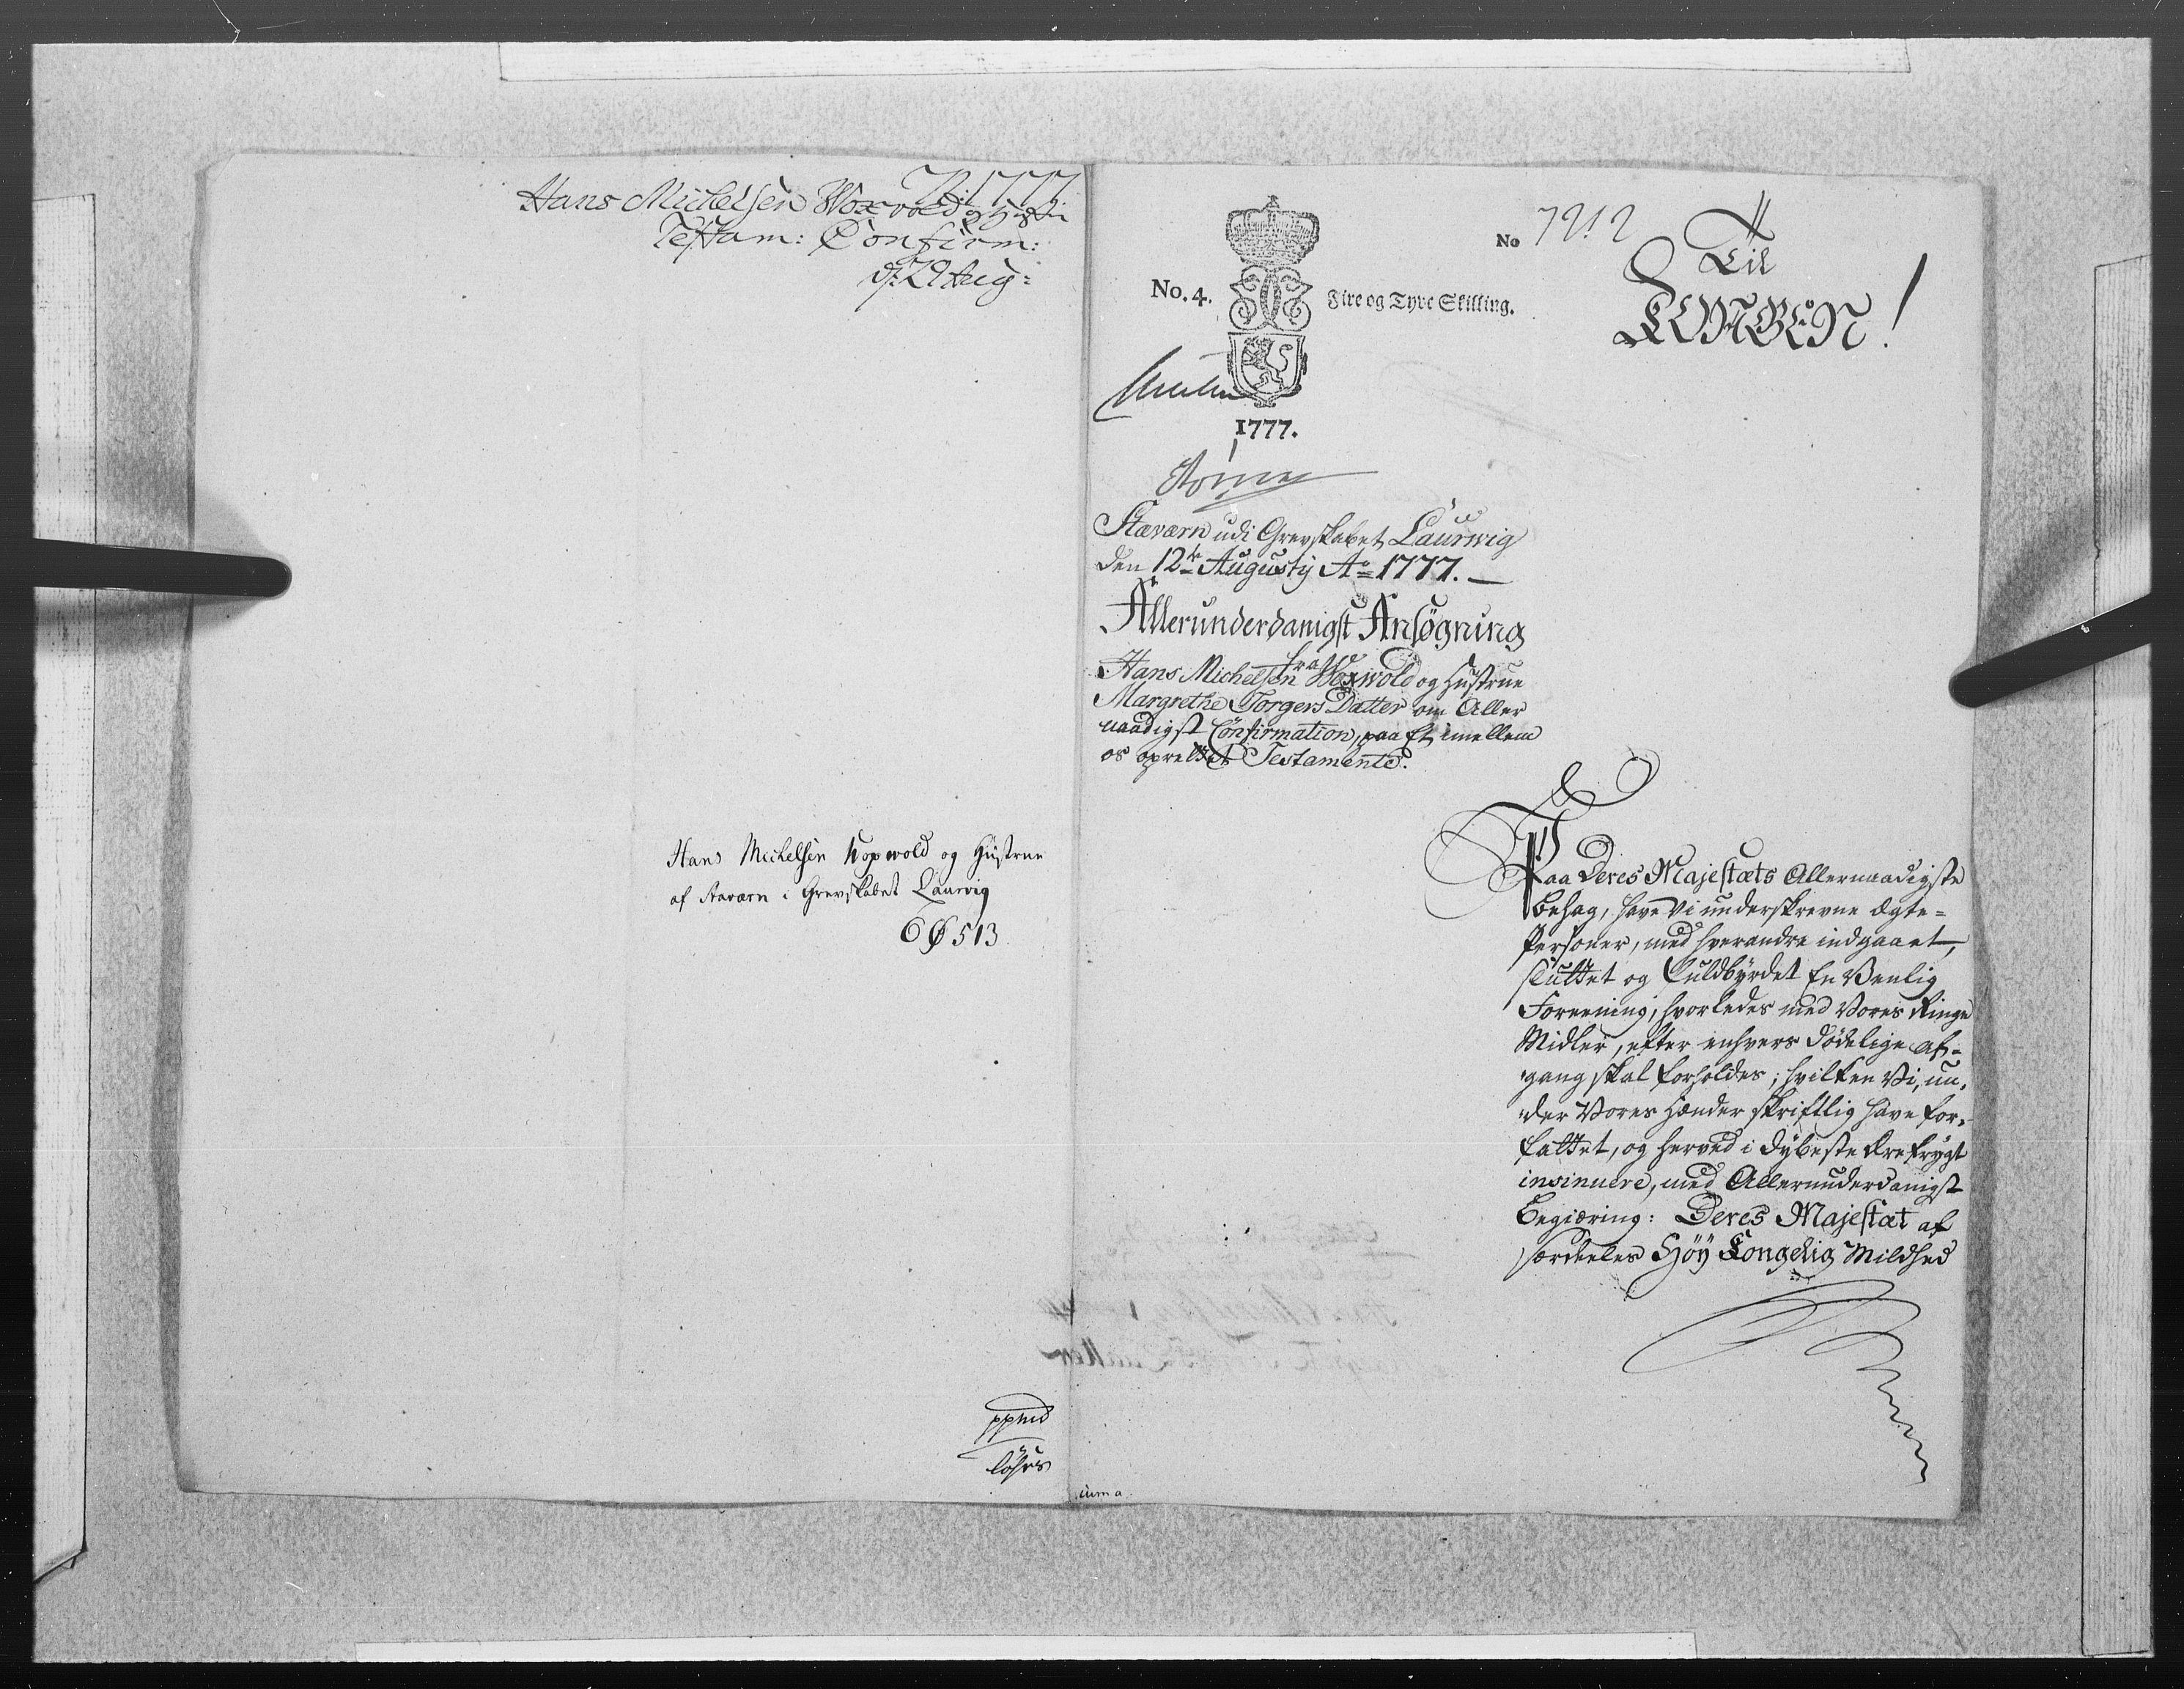 1777
Hans Michelsen Woxvold og Hustru
Testam: Confirm:
d. 29 Aug:
Hans Michelsen Woxwold og Hustrue
af Staværn i Grevskabet Laurvig
513
No. 4.
Fire og Tyve Skilling.
1777.
No 7212
Til
KONGEN!
Staværn udi Grevskabet Laurwig
den 12te Augusty Ao 1777.
Allerunderdanigst Ansøgning
fra
Hans Michelsen Woxwold og Hustrue
Margrethe Torgers Datter om Aller
naadigst Confirmation, paa Et imellem
os oprettet Testamente.
Paa Deres Majestæts Allernaadigste
behag, have Vi underskrevne Ægte-
Personer, med hverandre indgaaet,
sluttet og Fuldbyrdet En Venlig
Foreening, hvorledes med Vores Ringe
Midler, efter enhvers dødelige Af-
gang skal forholdes; hvilken Vi, un-
der Vores Hænder skriftlig have for-
fattet, og herved i dybeste Ærefrygt
insinuere, med Allerunderdanigst
Begiæring: Deres Majestæt af
særdeeles Høy Kongelig Mildhed